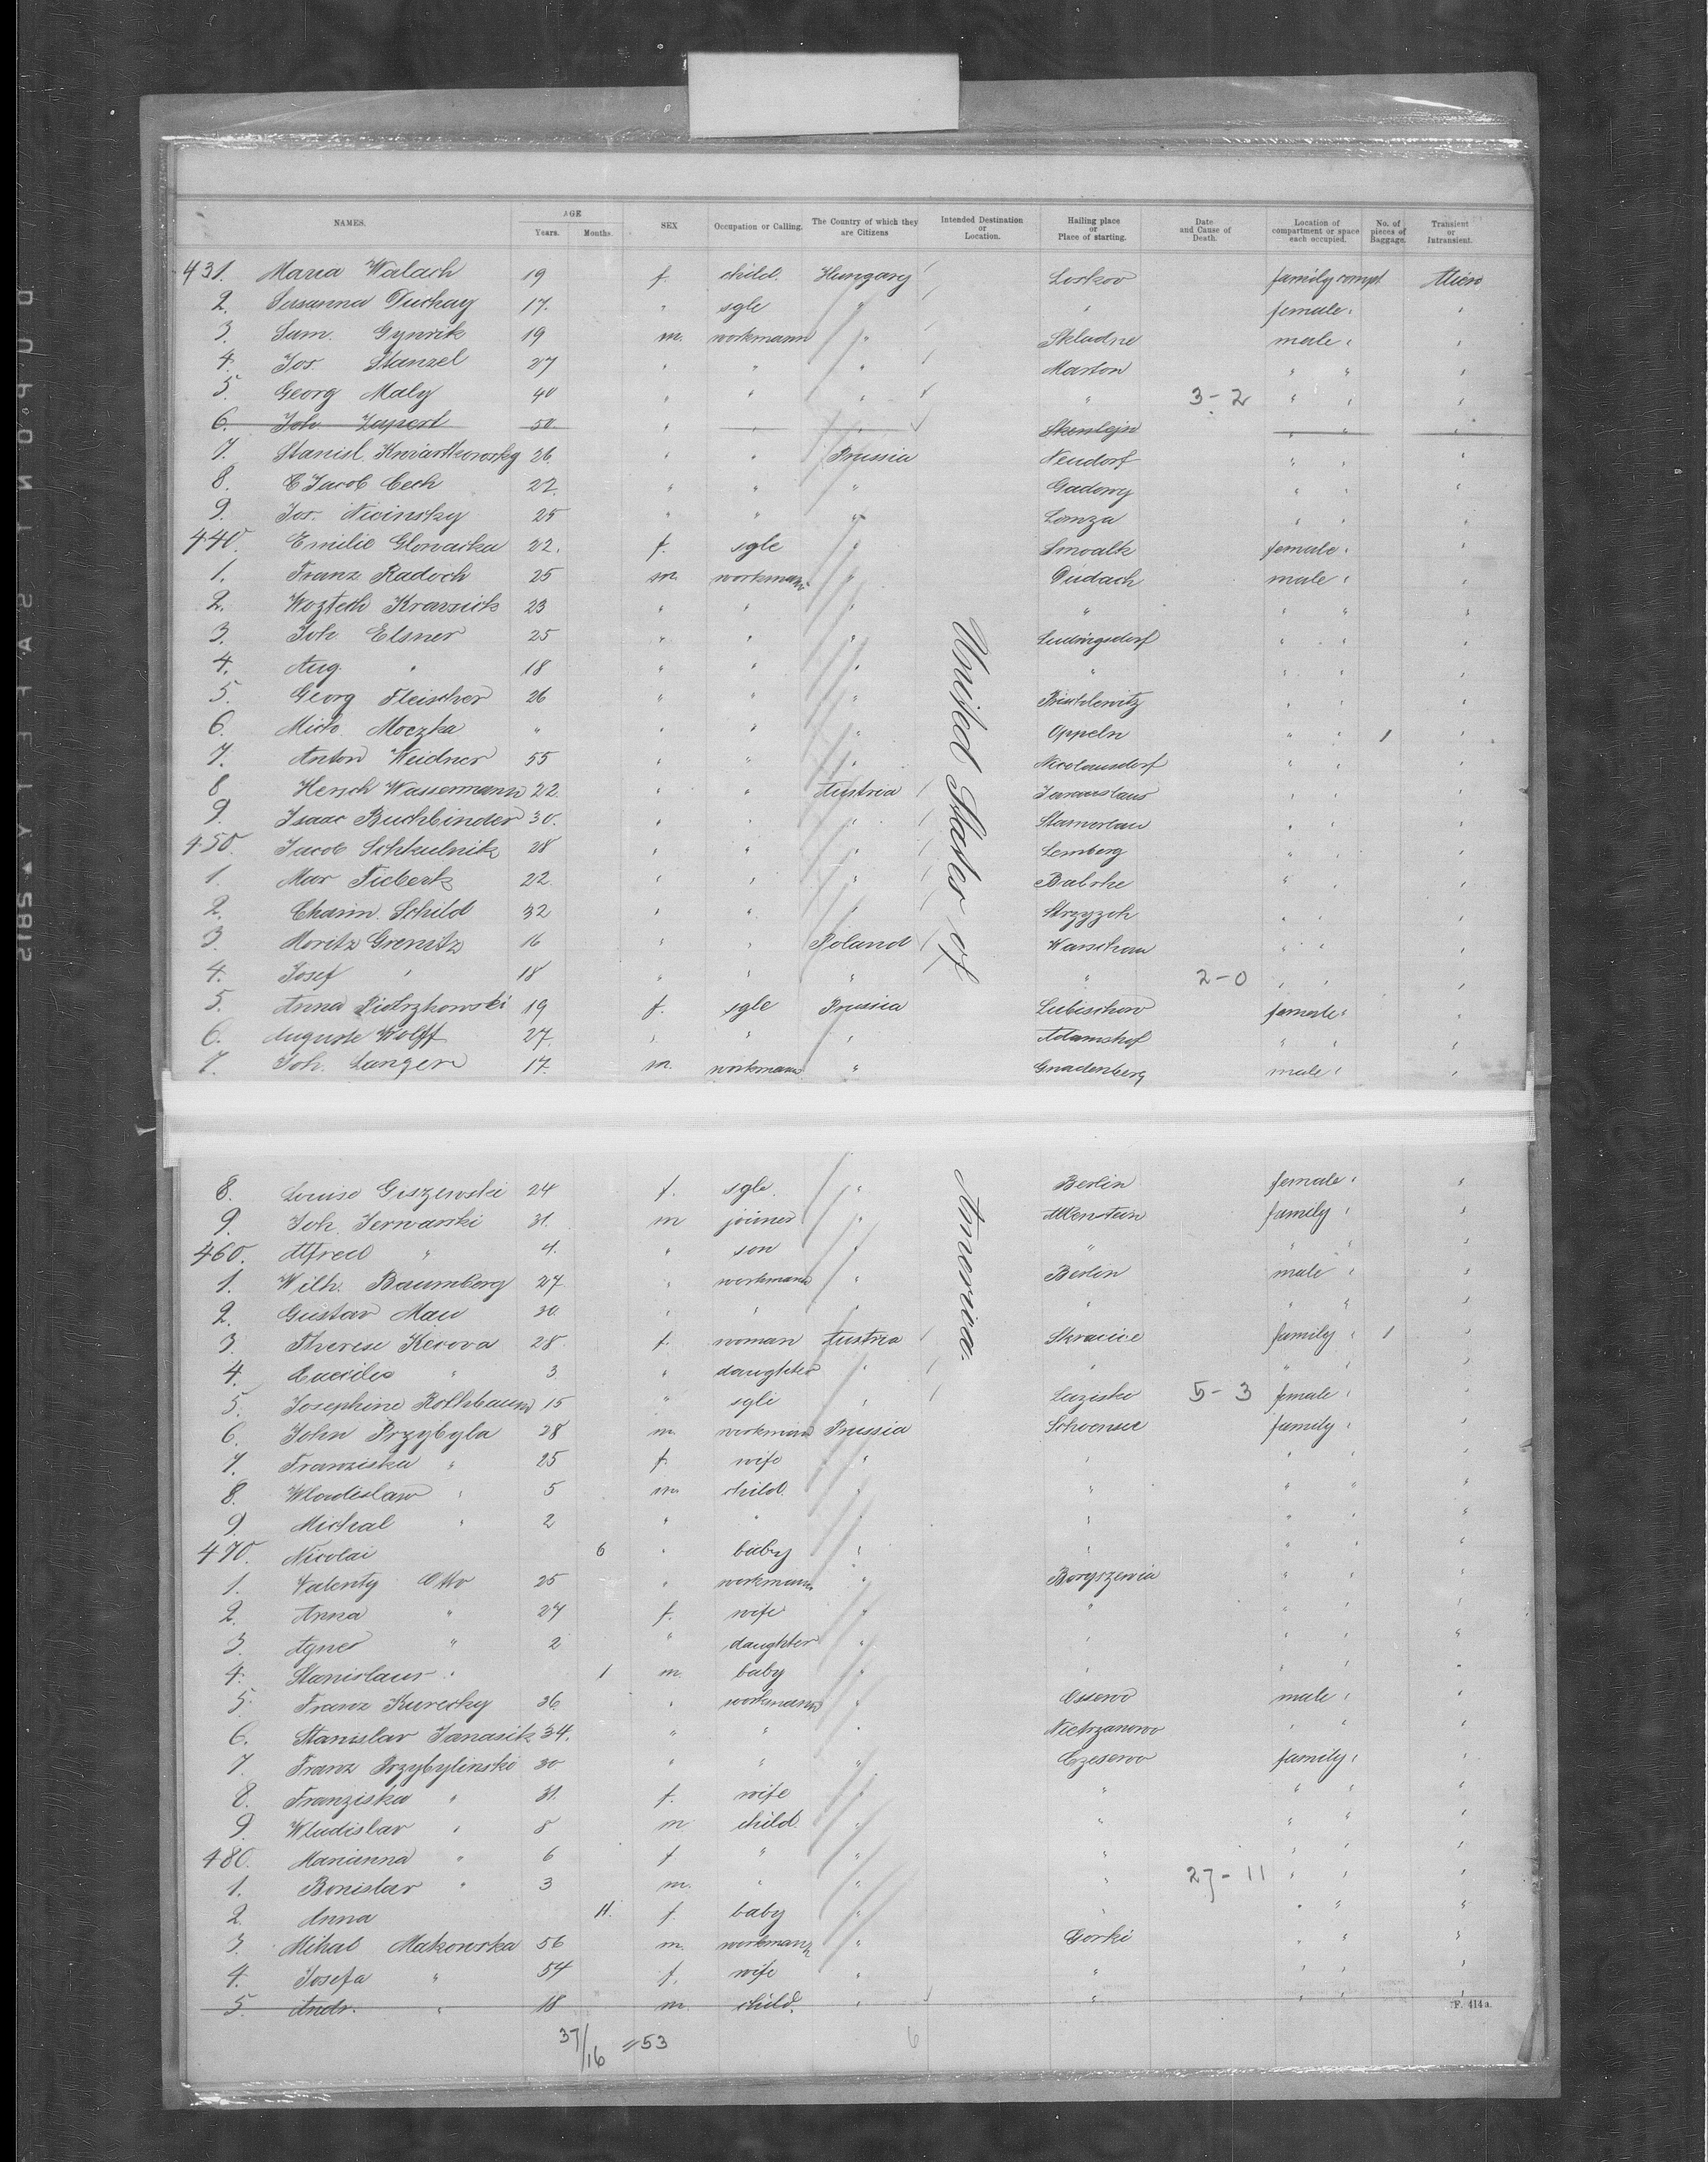 NAMES. AGE Years. Months. SEX Occupation or Calling. The Country of which they are Citizens Intended Destination or Location. Hailing place or Place of starting. Date and Cause of Death. Location of compartment or space each occupied. No. of pieces of Baggage. Transient or Intransient.
431. Maria Walach 19 f. child. Hungary female family compt. Alien
2. Susanna Duchay 17. " sgle " " female "
3. Sam. Gynrik 19 m. workmann " Skladne male " "
4. Jos. Stanzel 27 " " " Marton " " "
5. Georg Maly 40 " " " " 3-2 " " "
6. Joh. 50 " " " " " "
7. Stanisl. Kwiartkowsky 26. " " Prussia Neudorf " " "
8. Jacob Cech 22. " " " Gadowy " " "
9. Jos. Nicinsky 25 " " " Lomza " " "
440. Emilie Glowacka 22. f. sgle " Smoalk female " "
1. Franz Radoch 25 m. workmann " Dudach male " "
2. Kravsick 23 " " " " " " "
3. Joh. Elsner 25 " " " Ludwigsdorf " " "
4. Aug. " 18 " " " " " " "
5. Georg Fleischer 26 " " " " " "
6. Mich. Moczka " " " " Oppeln " " 1 "
7. Anton Weidner 55 " " " Nicolausdorf " " "
8 Hersch Wassermann 22. " " Austria Jarouslaus " " "
9. Isaac Buchbinder 30. " " " " " "
450. Jacob Schkulnik 28 " " " Lemberg " " "
1. Mar 22. " " " Babrke " " "
2. Chaim Schild 32 " " " Strzyzoh " " "
3. Moritz Grenitz 16 " " Poland Warschau " " "
4. Josef " 18 " " " " 2-0 " " "
5. Anna Piotrzkowski 19 f. sgle Prussia Lubischow female " "
6. Auguste Wolff 27. " " " Adamshof " " "
7. Joh. Langer 17. m. workmann " Gnadenberg male " "
United States of
America.
8. Louise Giszewski 24 f. sgle. " Berlin female " "
9. Joh. Jerwarski 31. m joiner " Allenstein family " "
460. Alfred " 4. " son " " " " "
1. Wilh. Baumberg 27 " workmann " Berlin male " "
2. Gustav Mau 30. " " " " " " "
3. Therese Kecova 28. f. woman Austria Skracice family " 1 "
4. Caecilie " 3. " daughter " " " " "
5. Josephine Rothbaum 15 " sgle " Laziske 5-3 female " "
6. John Przybyla 28 m. workmann Prussia Schoensee family " "
7. Franziska " 25 f. wife " " " " "
8. Wladislaw " 5 m. child. " " " " "
9. Michal " 2 " " " " " " "
470. Nicolai 6 " baby " " " " "
1. Valenty Otto 25 " workmann " Boryszewia " " "
2. Anna " 27 f. wife " " " " "
3. Agnes " 2 " daughter " " " " "
4. Stanislaus " 1 m. baby " " " " "
5. Franz Kuresky 36. " workmann " Ossowo male " "
6. Stanislav Janasik 34. " " " Nietrzanowo " " "
7. Franz Przybylinski 30 " " " Czesewo family " "
8. Franziska " 31. f. wife " " " " "
9. Wladislav " 8 m child. " " " " "
480. Marianna " 6 f " " " " " "
1. Bonislav " 3 m. " " " 27-11 " " "
2. Anna 11. f. baby " " " " "
3. Mihal Makowska 56 m. workmann " Gorki " " "
4. Josefa " 54 f. wife " " " " "
5. Andr. " 18 m. child. " " " " "
F. 414a.
37/16 = 53 6